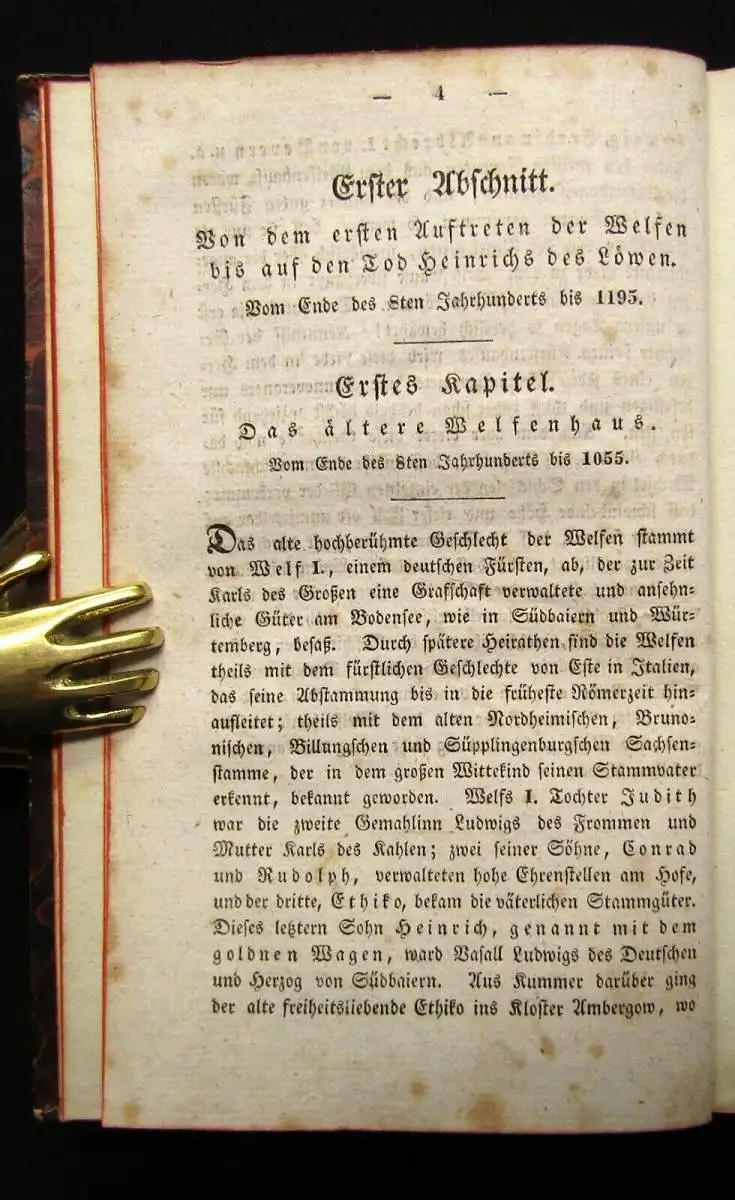 — 4 —
Erster Abschnitt.
Von dem ersten Auftreten der Welfen
bis auf den Tod Heinrichs des Löwen.
Vom Ende des 8ten Jahrhunderts bis 1195.
Erstes Kapitel.
Das ältere Welfenhaus.
Vom Ende des 8ten Jahrhunderts bis 1055.
Das alte hochberühmte Geschlecht der Welfen stammt
von Welf I., einem deutschen Fürsten, ab, der zur Zeit
Karls des Großen eine Grafschaft verwaltete und ansehn-
liche Güter am Bodensee, wie in Südbaiern und Wür-
temberg, besaß. Durch spätere Heirathen sind die Welfen
theils mit dem fürstlichen Geschlechte von Este in Italien,
das seine Abstammung bis in die früheste Römerzeit hin-
aufleitet; theils mit dem alten Nordheimischen, Bruno-
nischen, Billungschen und Süpplingenburgschen Sachsen-
stamme, der in dem großen Wittekind seinen Stammvater
erkennt, bekannt geworden. Welfs I. Tochter Judith
war die zweite Gemahlinn Ludwigs des Frommen und
Mutter Karls des Kahlen; zwei seiner Söhne, Conrad
und Rudolph, verwalteten hohe Ehrenstellen am Hofe,
und der dritte, Ethiko, bekam die väterlichen Stammgüter.
Dieses letztern Sohn Heinrich, genannt mit dem
goldnen Wagen, ward Vasall Ludwigs des Deutschen
und Herzog von Südbaiern. Aus Kummer darüber ging
der alte freiheitsliebende Ethiko ins Kloster Ambergow, wo